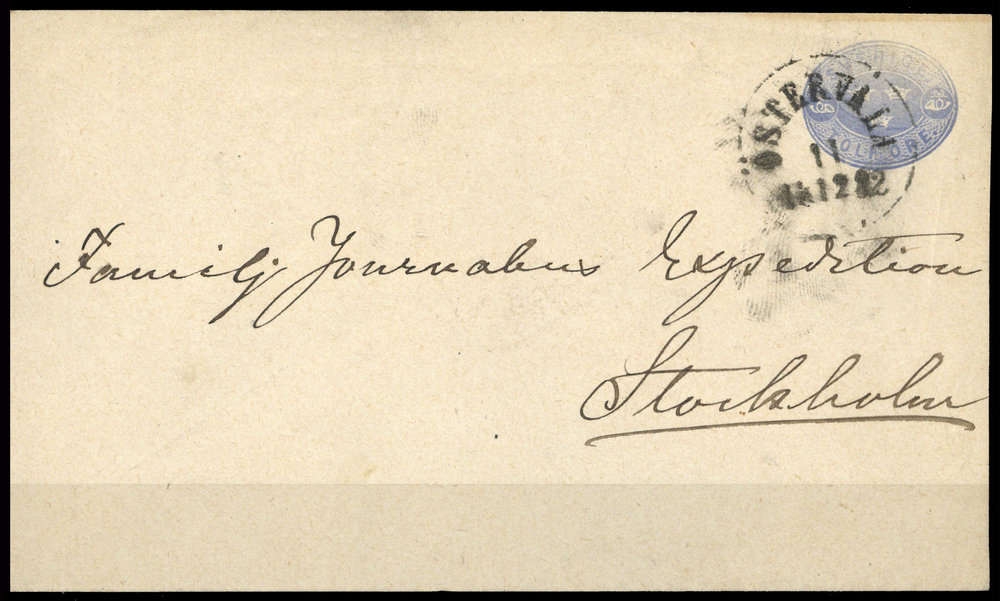 ÖSTERVÅLA
11
12
TOLF ÖRE
Familj Journalens Expedition
Stockholm